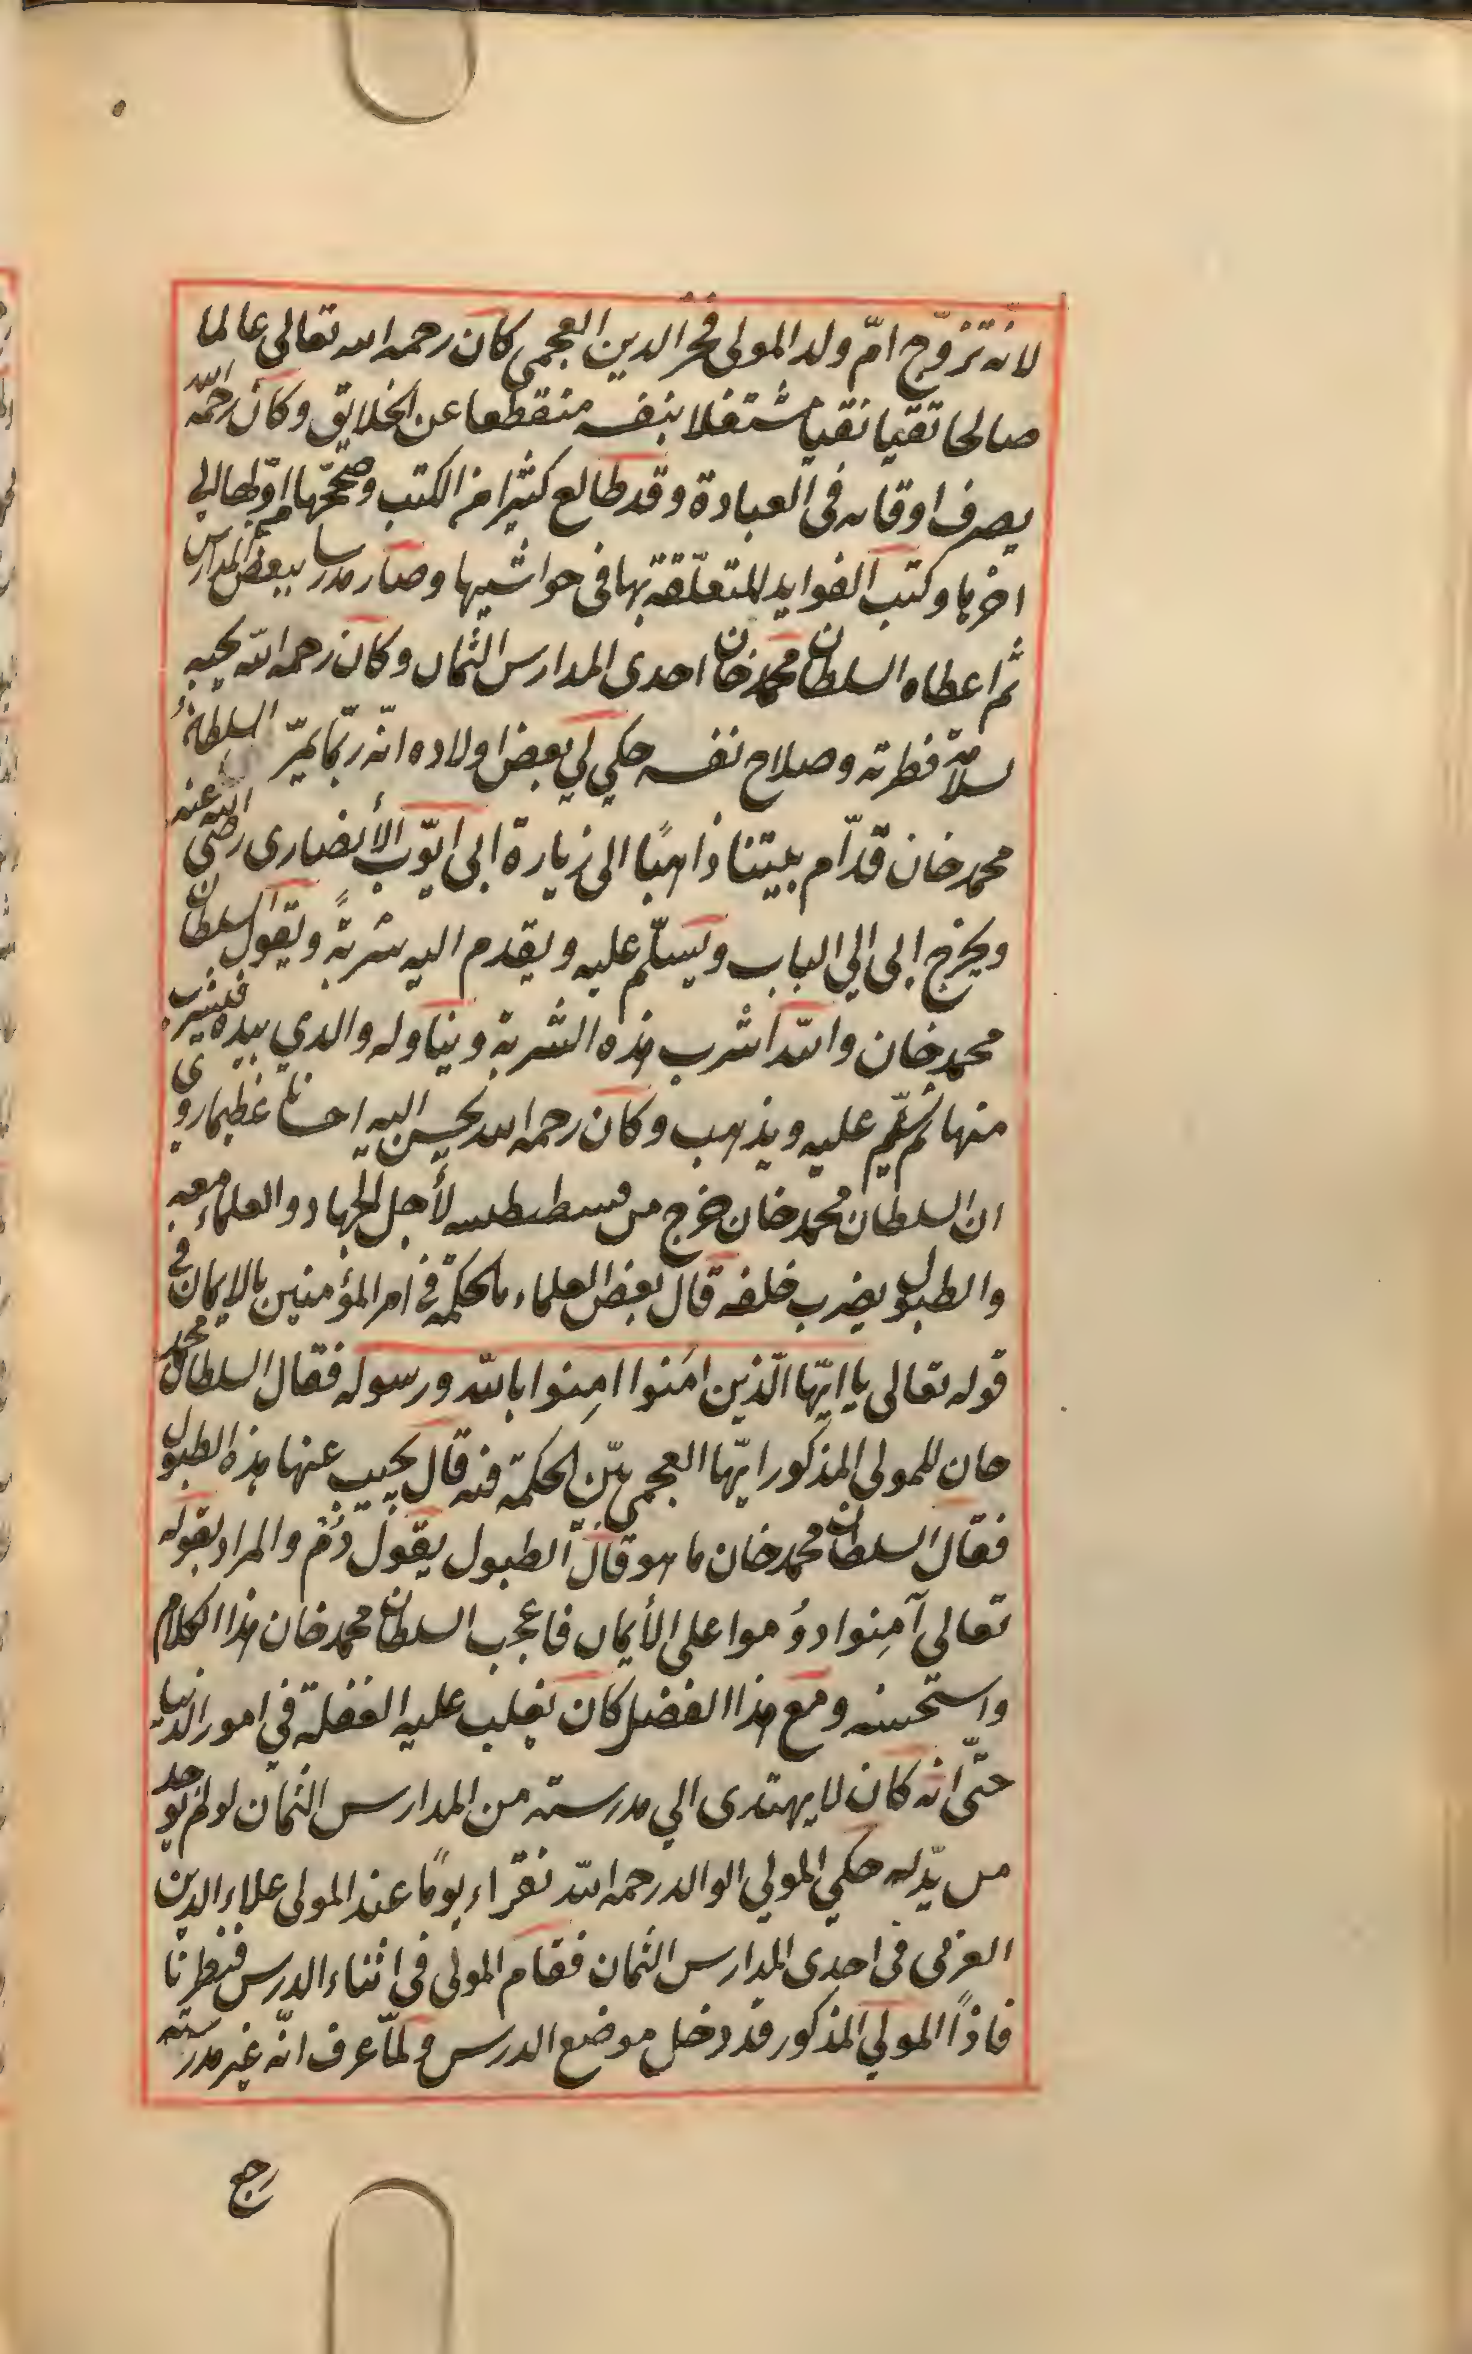 لانه تزوّج امّ ولد المولى فخر الدين العجمى كان رحمه الله تعالى عالما
صالحا تقيا نقيا مشتغلا بنفسه منقطعا عن الخلايق وكان رحمه الله
يصرف اوقاته فى العبادة وقد طالع كثيرا من الكتب وصحّحها من اوّلها الى
اخرها وكتب الفوايد المتعلّقة بها فى حواشيها وصار مدرسا ببعض المدارس
ثم اعطاه السلطان محمد خان احدى المدارس الثمان وكان رحمه الله يحبه
لسلامة فطرته وصلاح نفسه حكي لي بعض اولاده انّه ربّما يمرّ السلطان
محمد خان قدّام بيتنا ذاهبًا الى زيارة ابى ايّوب الأنصارى رضى الله عنه
ويخرج ابى الي الباب ويسلّم عليه ويقدم اليه شربةً ويقول السلطان
محمد خان والله اشرب هذه الشربة ويناوله والدي بيده فيشرب
منها ثم يسلّم عليه ويذهب وكان رحمه الله يحسن اليه احسانا عظيما روى
ان السلطان محمد خان خرج من قسطنطينيه لأجل الجهاد والعلماء معه
والطبول يضرب خلفه قال بعض العلماء ما لحكمة فى امر المؤمنين بالايمان فى
قوله تعالى يا ايّها الّذين امَنوا امِنوا بالله ورسوله فقال السلطان محمد
خان للمولى المذكور ايّها العجمى بيّن الحكمة فيه قال يجيب عنها هذه الطبول
فقال السلطان محمد خان ما هو قال الطبول يقول دُمْ دُمْ والمراد بقوله
تعالى آمِنوا دوُموا على الأيمان فاعجب السلطان محمد خان هذا الكلام
واستحسنه ومع هذا الفضل كان يغلب عليه الغفلة في امور الدنيا
حتّى انّه كان لا يهتدى الي مدرسته من المدارس الثمان لو لم يوجد
من يدّله حكي المولي الوالد رحمه الله نقراء يومًا عند المولى علاء الدين
العربى فى احدى المدارس الثمان فقام المولى فى اثناء الدرس فنظرنا
فاذًا المولي المذكور قد دخل موضع الدرس ولمّا عرف انّه غير مدرسته
رجع